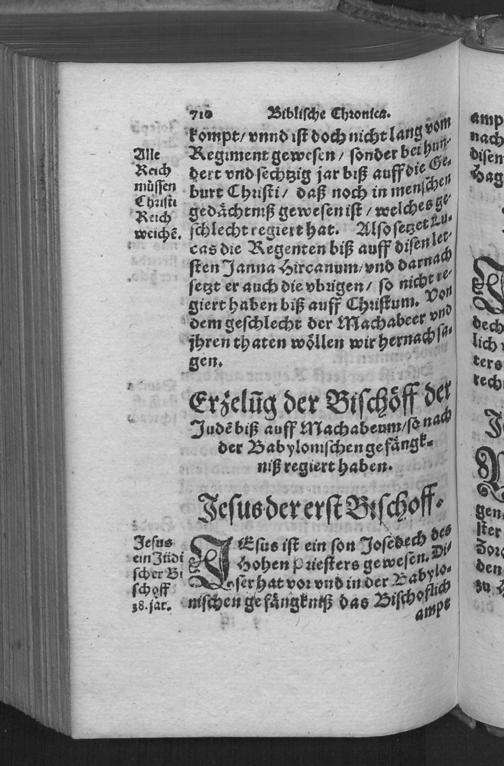 710 Biblische Chronica.
kompt/ vnnd ist doch nicht lang vom
Regiment gewesen/ sonder bei hun-
dert vnd sechtzig jar biß auff die Ge-
burt Christi/ daß noch in menschen
gedächtniß gewesen ist/ welches ge-
schlecht regiert hat. Also setzet Lu-
cas die Regenten biß auff disen let-
sten Janna Hircanum/ vnd darnach
setzt er auch die vbrigen/ so nicht re-
giert haben biß auff Christum. Von
dem geschlecht der Machabeer vnd
jhren thaten wöllen wir hernach sa-
gen.
Alle
Reich
müssen
Christi
Reich
weichē.
Erzelūg der Bischöff der
Judē biß auff Machabeum/ so nach
der Babylonischen gefängk-
niß regiert haben.
Jesus der erst Bischoff.
Jesus
ein Jüdi
scher Bi
schoff
38. jar.
JEsus ist ein son Josedech des
Hohen priesters gewesen. Di-
ser hat vor vnd in der Babylo-
nischen gefängkniß das Bischoflich
ampt
amp
nach
disen
dech
lich
ters
rech
gen
ster
den
zu